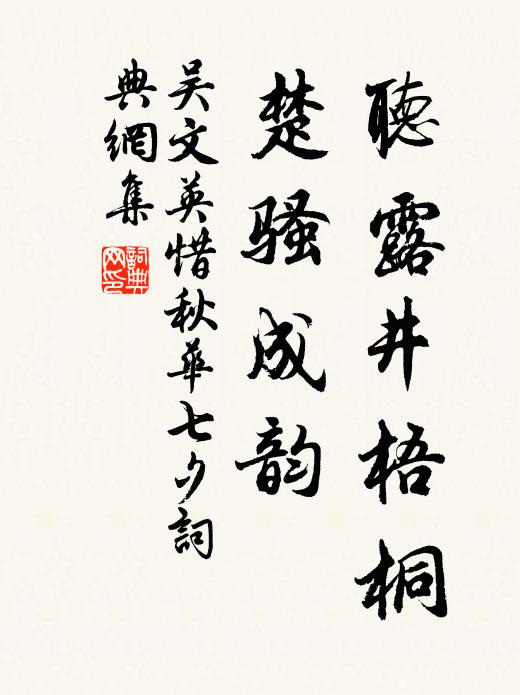 聽露井梧桐
楚骚成韵
吴文英惜秋華七夕詞
典網集
詞典
网印